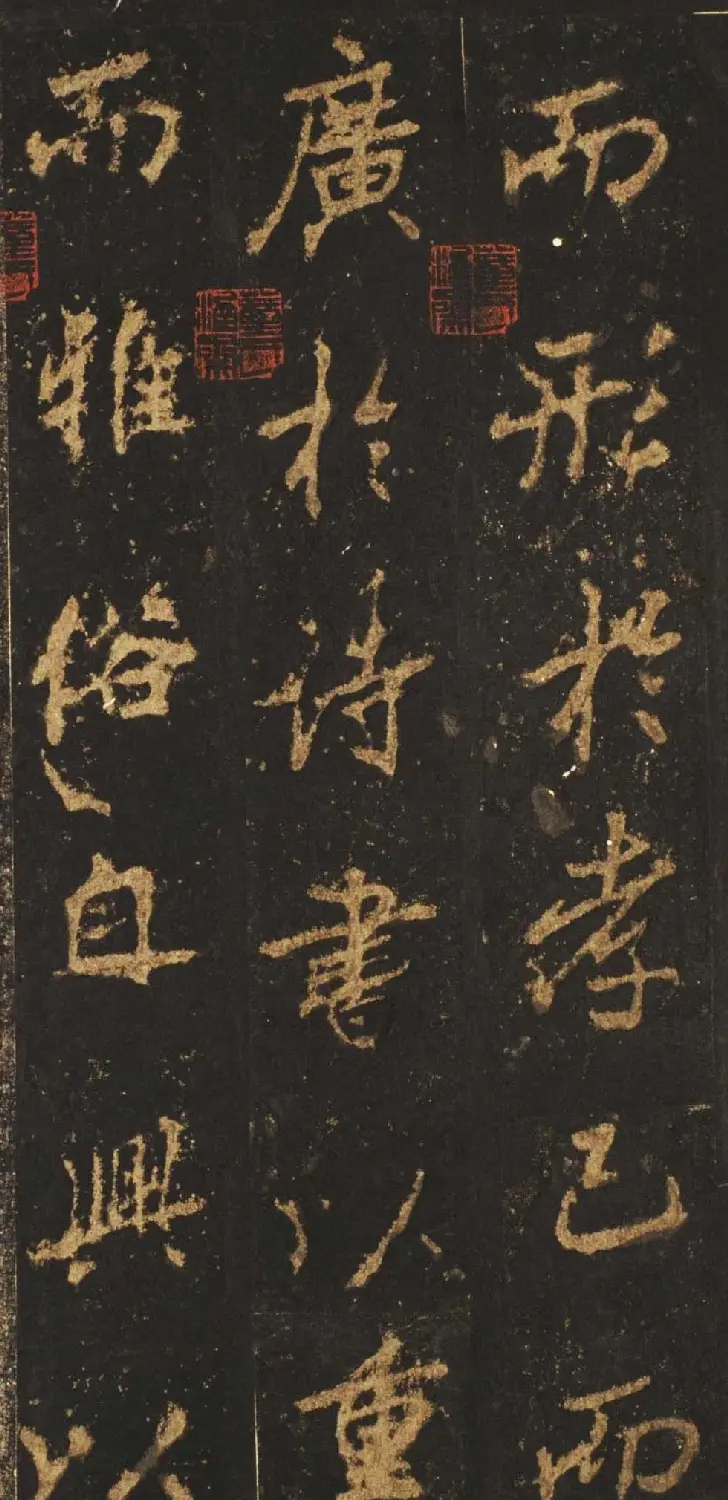 而形於孝已而
廣於詩書以重
而雅俗自興以